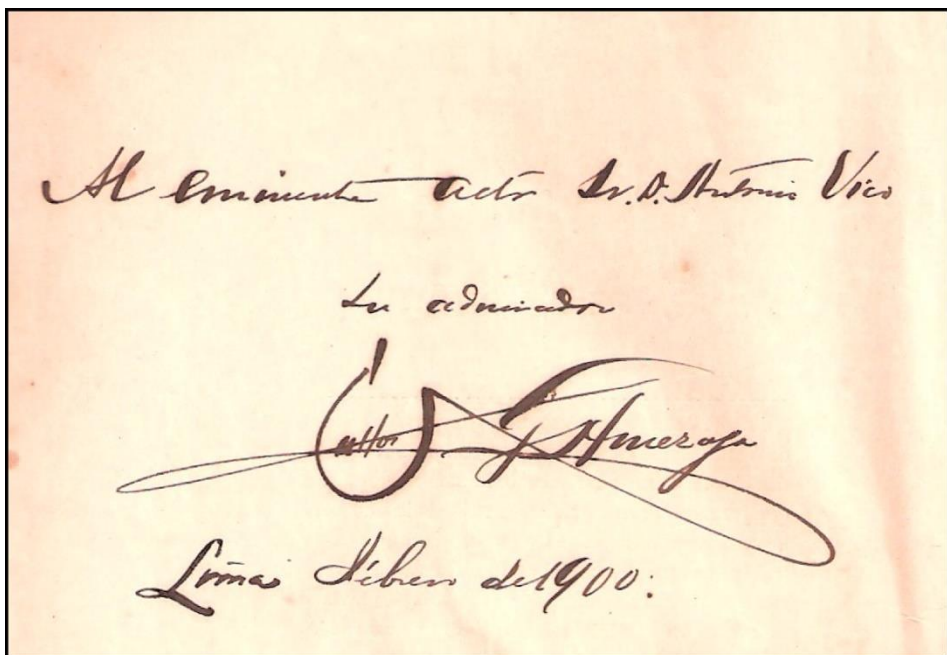 Al eminente actor Sr. D. Antonio Vico
su admirador
Carlos G. Amezaga
Lima Febrero de 1900.